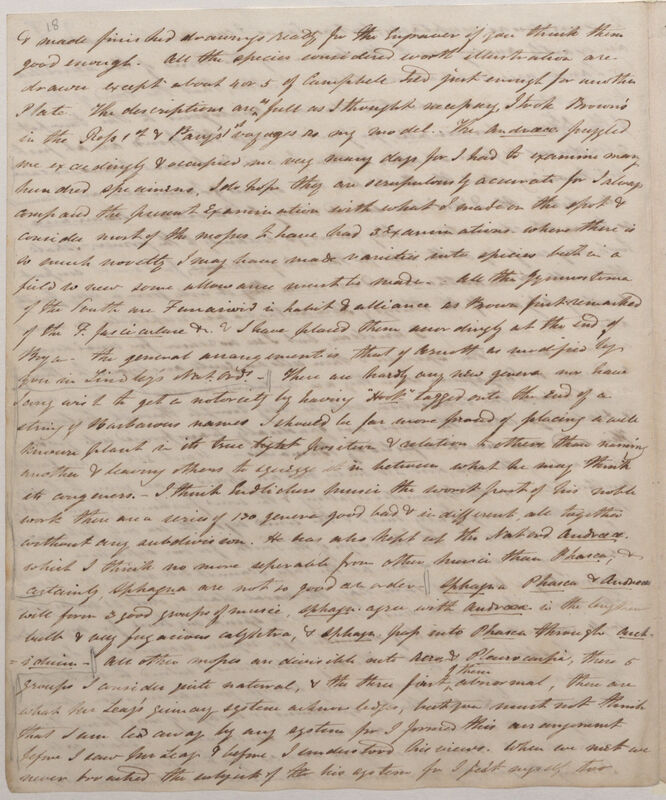 18
& made finished drawings ready for the Engraver if you think them
good enough. All the species considered worth illustration are
drawn except about 4 or 5 of Campbell Isld just enough for another
Plate. The descriptions are as full as I thought necessary, I took Brown's
in the Ross 1st & Parry's 1st voyages as my model. The andraeae puzzled
me exceedingly & occupied me very many days for I had to examine many
hundred specimens, I do hope they are scrupulously accurate for I always
compared the present Examination with what I made on the spot &
consider most of the mosses to have had 3 Examinations. where there is
so much novelty I may have made varieties into species but in a
field so new some allowance must be made. All the Gymnostoma
of the South are Funarioid in habit & alliance as Brown first remarked
of the F. fasciculare &c I have placed them accordingly at the end of
Brya - the general arrangement is that of Arnott as modified by
you in Lindley's Nat. Ords. - There are hardly any new genera nor have
I any wish to get a notoriety by having "Hook" tagged onto the end of a
string of Barbarous names I should be far more proud of placing a well
known plant in its true position & relation to others than naming
another & leaving others to squeeze it in between what he may think
its congeners. - I think Endlichers musci the worst part of his noble
work there are a series of 130 genera good bad & indifferent all together
without any subdivision. He has also kept up the Nat ord Andraeae
which I think no more seperable from other musci than Phasca, &
certainly Sphagna are not so good an order Sphagna Phasca & Andraeae
will form 3 good groups of musci, sphagn. agree with andraeae in the
& very fugacious calyptra, & sphagn. pass into Phasca through arch-
=idium - all other mosses are divisible into acro & Pleurocarpi, these 5
groups I consider quite natural, & the three first of them abnormal, these are
what McLeay's quinary system acknowledges, but you must not think
that I am led away by any system for I formed this arrangement
before I saw McLeay & before I understood his views. When we met we
never broached the subject of his system for I felt myself too